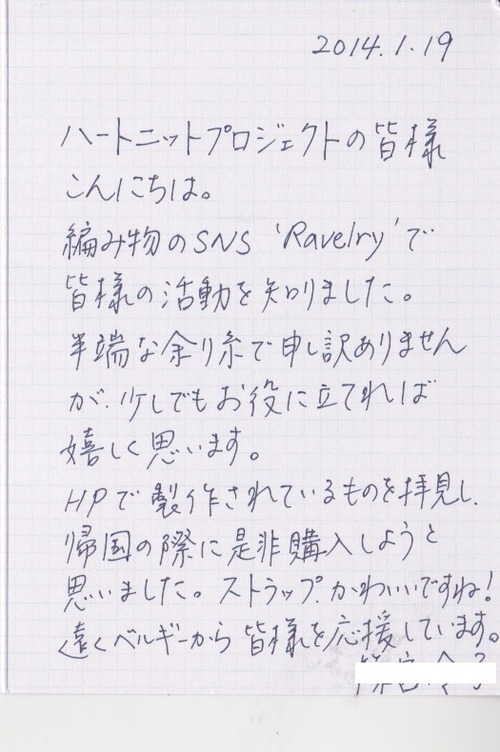 2014.1.19
ハートニットプロジェクトの皆様
こんにちは。
編み物のSNS 'Ravelry'で
皆様の活動を知りました。
半端な余り糸で申し訳ありません
が、少しでもお役に立てれば
嬉しく思います。
HPで製作されているものを拝見し、
帰国の際に是非購入しようと
思いました。ストラップ、かわいいですね!
遠くベルギーから皆様を応援しています。